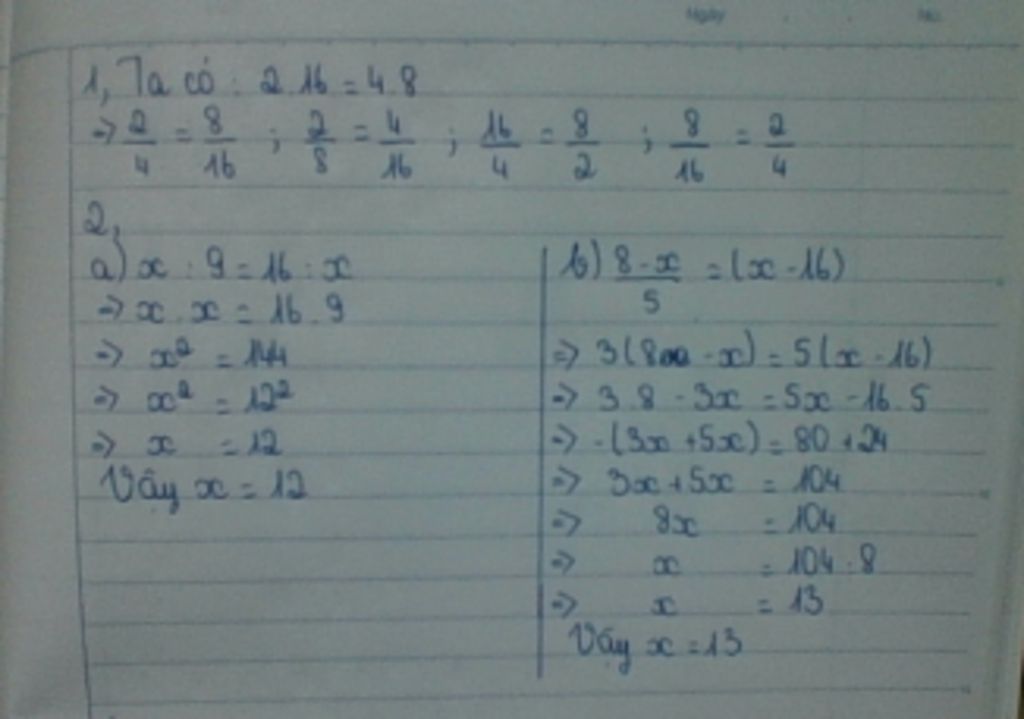 Ngày No.
1, Ta có : 2.16 = 4.8
=> 2/4 = 8/16 ; 2/8 = 4/16 ; 16/4 = 8/2 ; 8/16 = 2/4
2,
a) x : 9 = 16 : x
=> x . x = 16 . 9
=> x² = 144
=> x² = 12²
=> x = 12
Vậy x = 12
b) 8-x/5 = (x-16)
=> 3(8 - x) = 5(x - 16)
=> 3.8 - 3x = 5x - 16.5
=> -(3x + 5x) = 80 + 24
=> 3x + 5x = 104
=> 8x = 104
=> x = 104 : 8
=> x = 13
Vậy x = 13